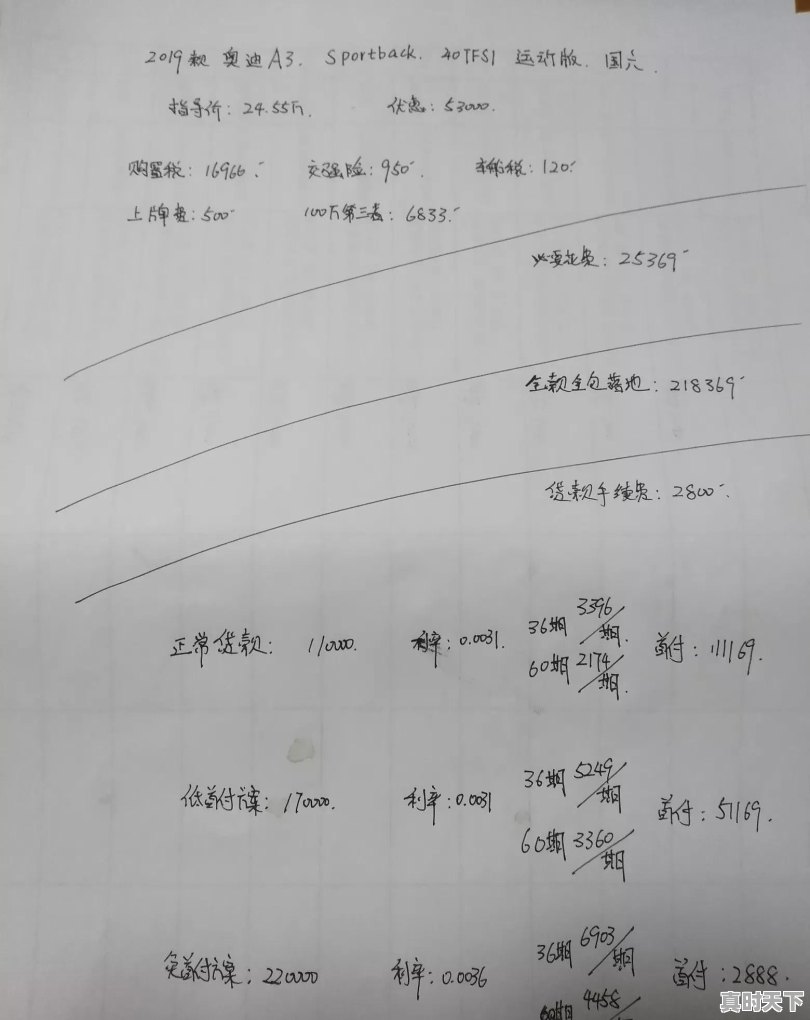 2019款 奥迪A3. Sportback. 40TFSI 运动版. 国六.
指导价: 24.55万. 优惠: 53000.
购置税: 16966. 交强险: 950. 车船税: 120.
上牌费: 500 100万第三者: 6833.
必要花费: 25369
全款全包落地: 218369
贷款手续费: 2800.
正常贷款: 110000. 利率: 0.0031. 36期 3396/期. 首付: 111169.
60期 2174/期.
低首付方案: 170000. 利率: 0.0031 36期 5249/期 首付: 51169.
60期 3360/期
零首付方案: 220000 利率: 0.0036 36期 6903/期 首付: 2888.
60期 4458/
真时天下